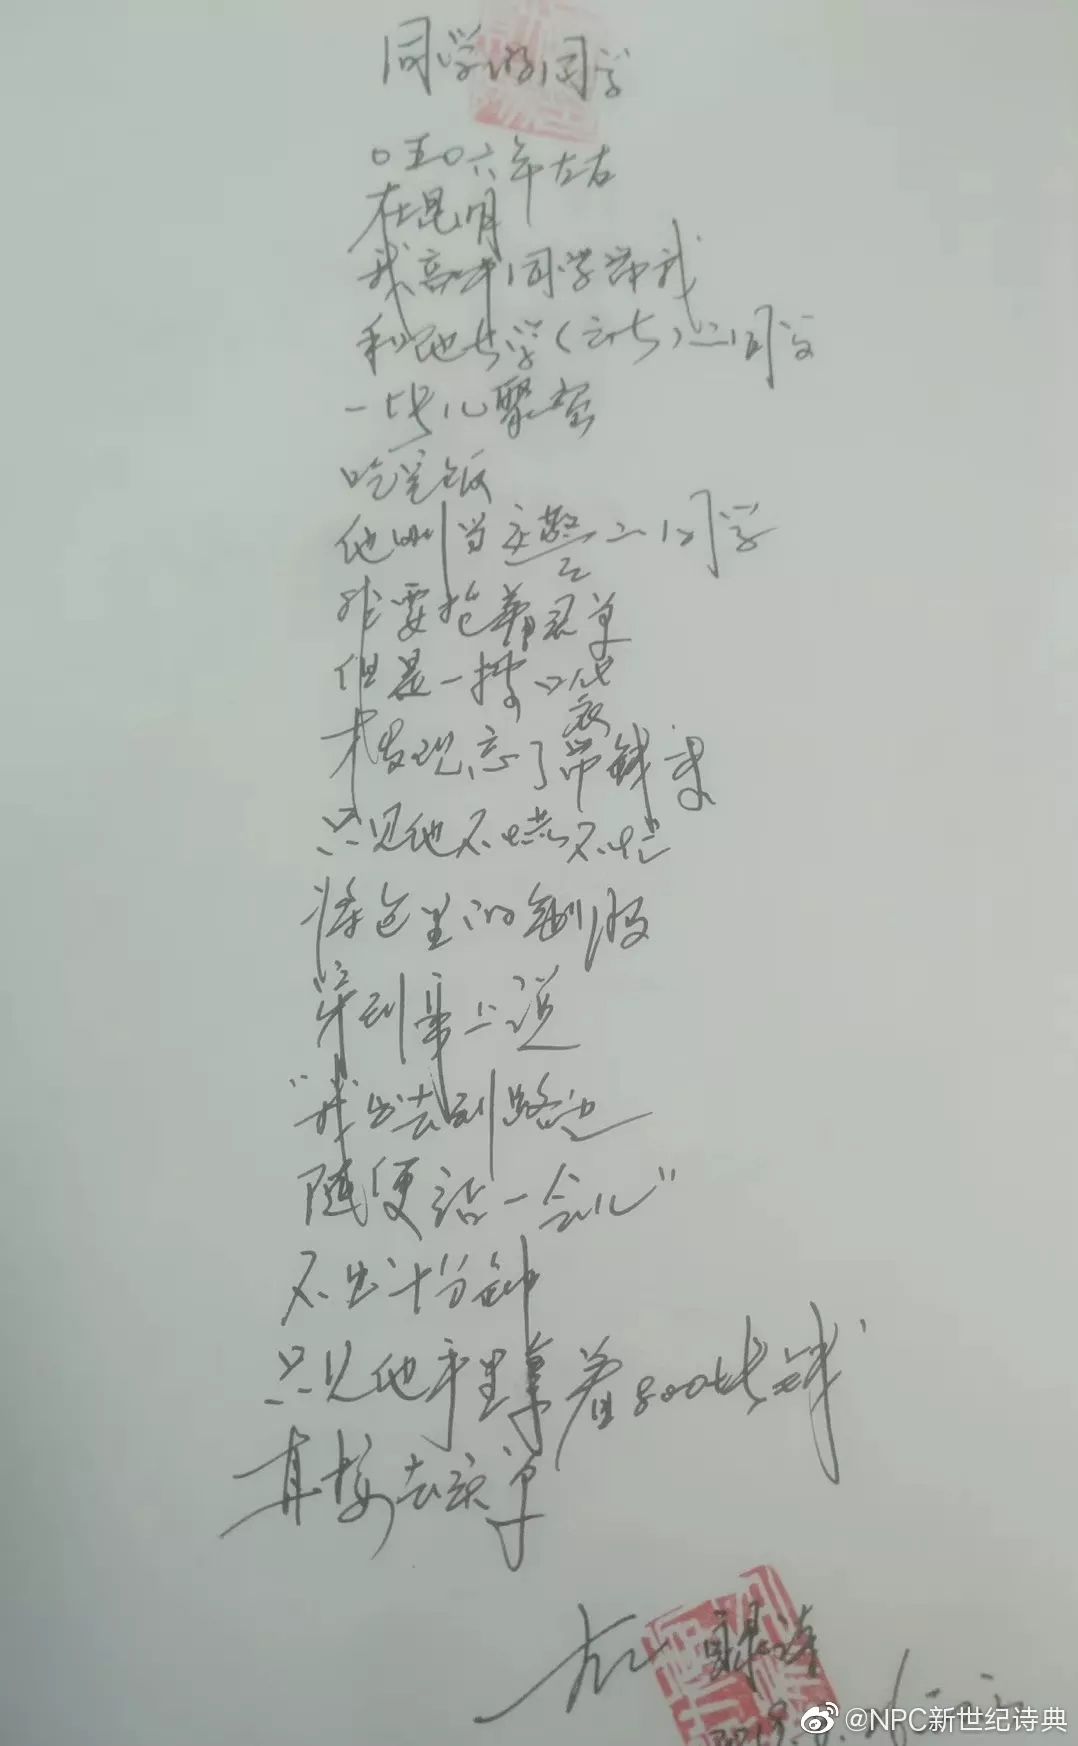 同学的同学
〇五〇六年左右
在昆明
我高中同学带我
和他大学(云大)的同学
一块儿聚会
吃完饭
他那当交警的同学
非要抢着买单
但是一摸口袋
才发现忘了带钱来
只见他不慌不忙
将包里的制服
穿到身上说
“我出去到路边
随便站一会儿”
不出十分钟
只见他手里拿着800块钱
直接去买单
左
@NPC新世纪诗典